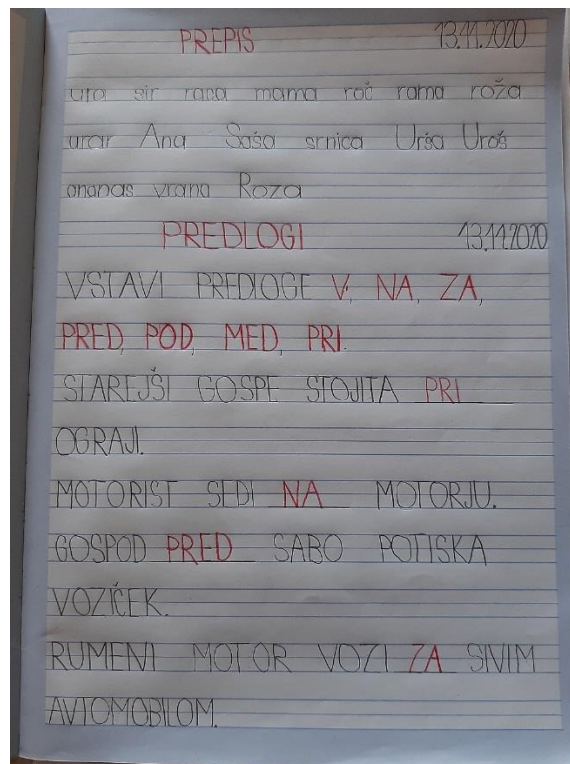 PREPIS 13.11.2020
ura sir raca mama roč rama roža
urar Ana Saša srnica Urša Uroš
ananas vrana Roza
PREDLOGI 13.11.2020
VSTAVI PREDLOGE V, NA, ZA,
PRED, POD, MED, PRI.
STAREJŠI GOSPE STOJITA PRI
OGRAJI.
MOTORIST SEDI NA MOTORJU.
GOSPOD PRED SABO POTISKA
VOZIČEK.
RUMENI MOTOR VOZI ZA SIVIM
AVTOMOBILOM.